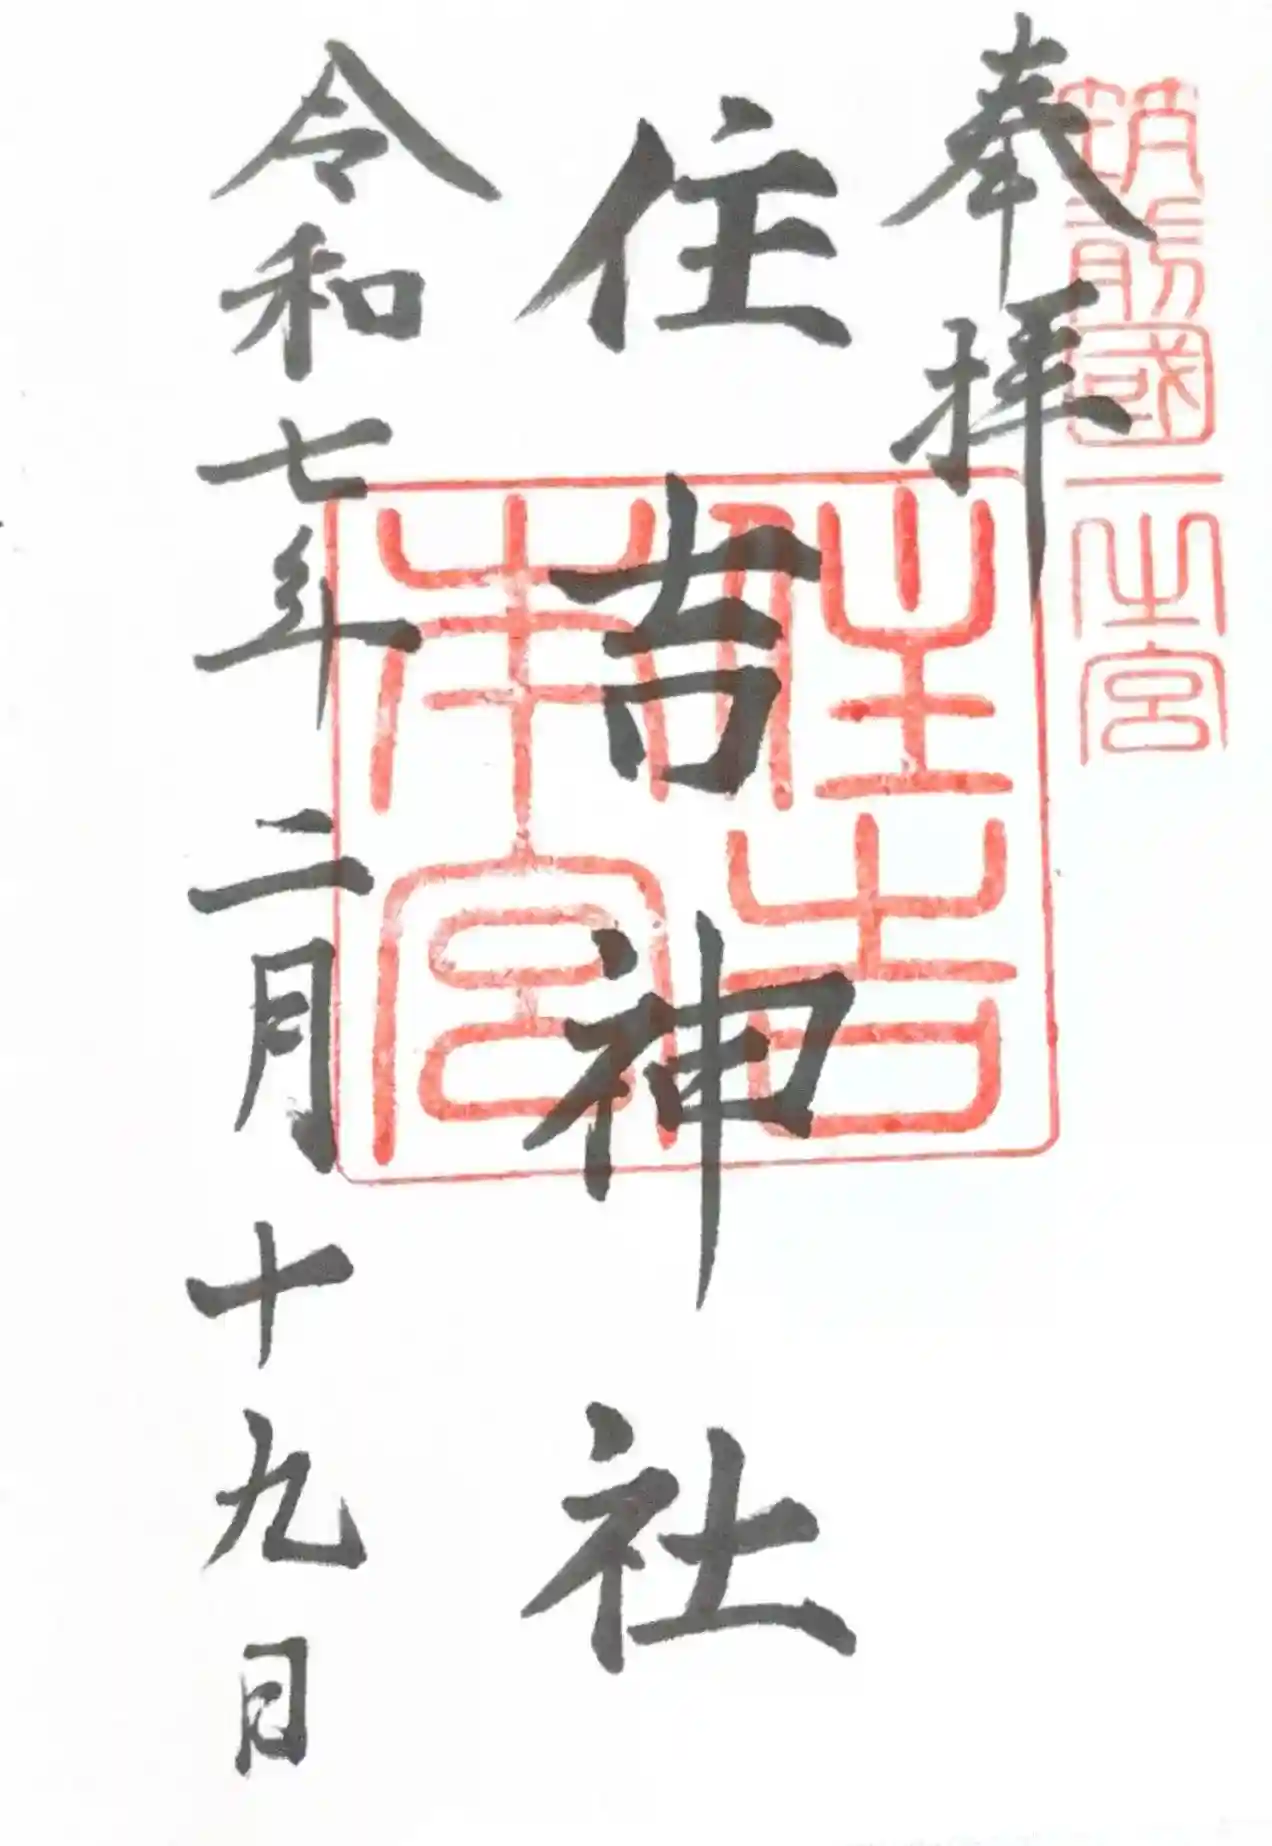 筑前國一之宮
奉拝
住吉神社
住吉
本宮
令和七年二月十九日